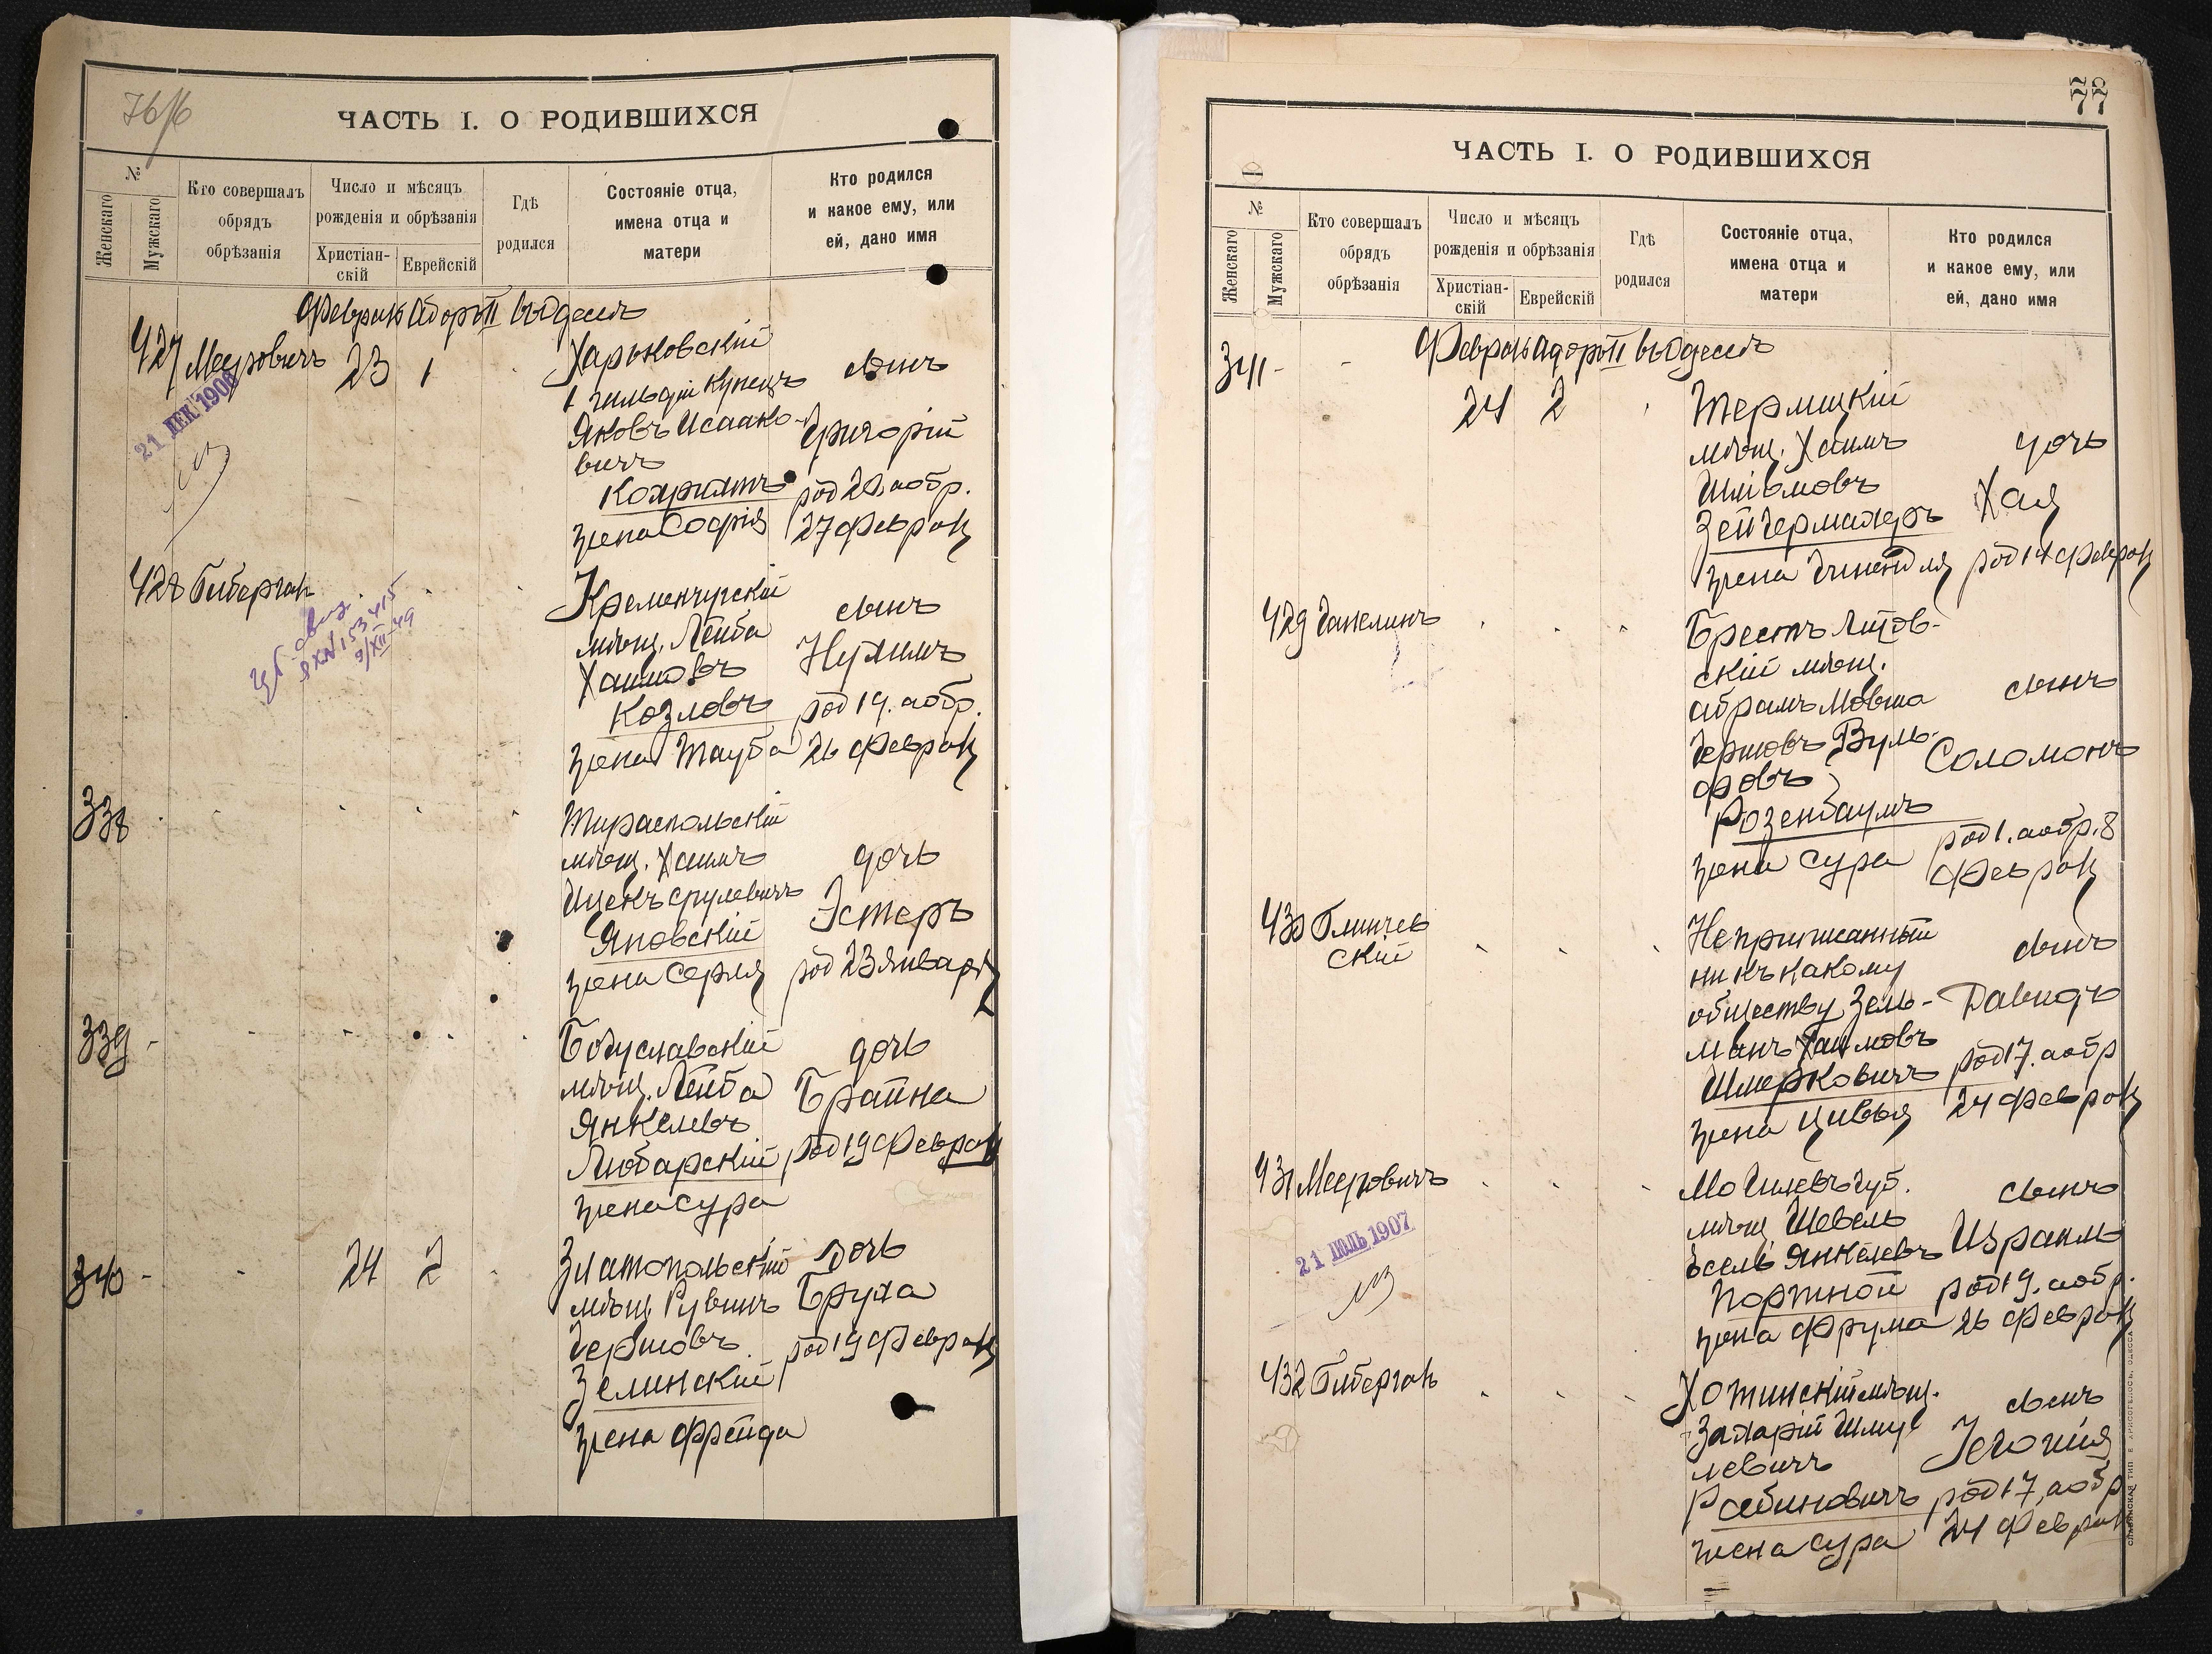 76/6
ЧАСТЬ I. О РОДИВШИХСЯ
№
Женскаго
Мужскаго
Кто совершалъ
обрядъ
обрѣзанія
Число и мѣсяцъ
рожденія и обрѣзанія
Христіан-
скій
Еврейскій
Гдѣ
родился
Состояніе отца,
имена отца и
матери
Кто родился
и какое ему, или
ей, дано имя
Февраль Адоръ II въ Одессѣ
427 Мееровичъ 23 1
Харьковскій
1 гильдіи купецъ
Яковъ Исаако-
вичъ
жена Софія
сынъ
Григорій
род 20, а обр.
27 Февраля
21 ДЕК 1906
428 Гиберган
Кременчугскій
мѣщ. Лейба
Хаимовъ
Козловъ
жена Тауба
сынъ
Нухимъ
род 19. а обр.
26 Февраля
9/XII-49
338
Тираспольскій
мѣщ. Хаимъ
Ицекъ Срулевичъ
Яновскій
жена Серля
дочь
Эстеръ
род 23 Января
339 -
Богуславскій
мѣщ. Лейба
Янкелевъ
Любарскій
жена Сура
дочь
Брайна
род 19 Февраля
340 - - 24 2
Златопольскій
мѣщ. Рувинъ
Гершовъ
Зелинскій
жена Фрейда
дочь
Бруха
род 19 Февраля
77
ЧАСТЬ I. О РОДИВШИХСЯ
№
Женскаго
Мужскаго
Кто совершалъ
обрядъ
обрѣзанія
Число и мѣсяцъ
рожденія и обрѣзанія
Христіан-
скій
Еврейскій
Гдѣ
родился
Состояніе отца,
имена отца и
матери
Кто родился
и какое ему, или
ей, дано имя
Февраль Адоръ II въ Одессѣ
341 - - 24 2
мѣщ. Хаимъ
Шліомовъ
Зейгермахеръ
жена
дочь
Хая
род 14 Февраля
429 Ганелинъ
Брестъ Литов-
скій мѣщ.
Абрамъ Мовша
Гершовъ Вуль-
фовъ
Розенбаумъ
жена Сура
сынъ
Соломонъ
род 1. а обр. 8
Февраля
430
скій
Неприписанный
ни къ какому
обществу Зель-
манъ Хаимовъ
Шмерковичъ
жена Цивья
сынъ
Давидъ
род 17. а обр
24 Февраля
431 Мееровичъ
Могилевъ губ.
мѣщ. Шевель
Іосель Янкелевъ
Портной
жена Фрума
сынъ
Израиль
род 19. а обр.
26 Февраля
21 ІЮЛЬ 1907
432 Гиберган
Хотинскій мѣщ.
Захарій Шму
левичъ
Рабиновичъ
жена Сура
сынъ
Іехонія
род 17, а обр
24 Февраля